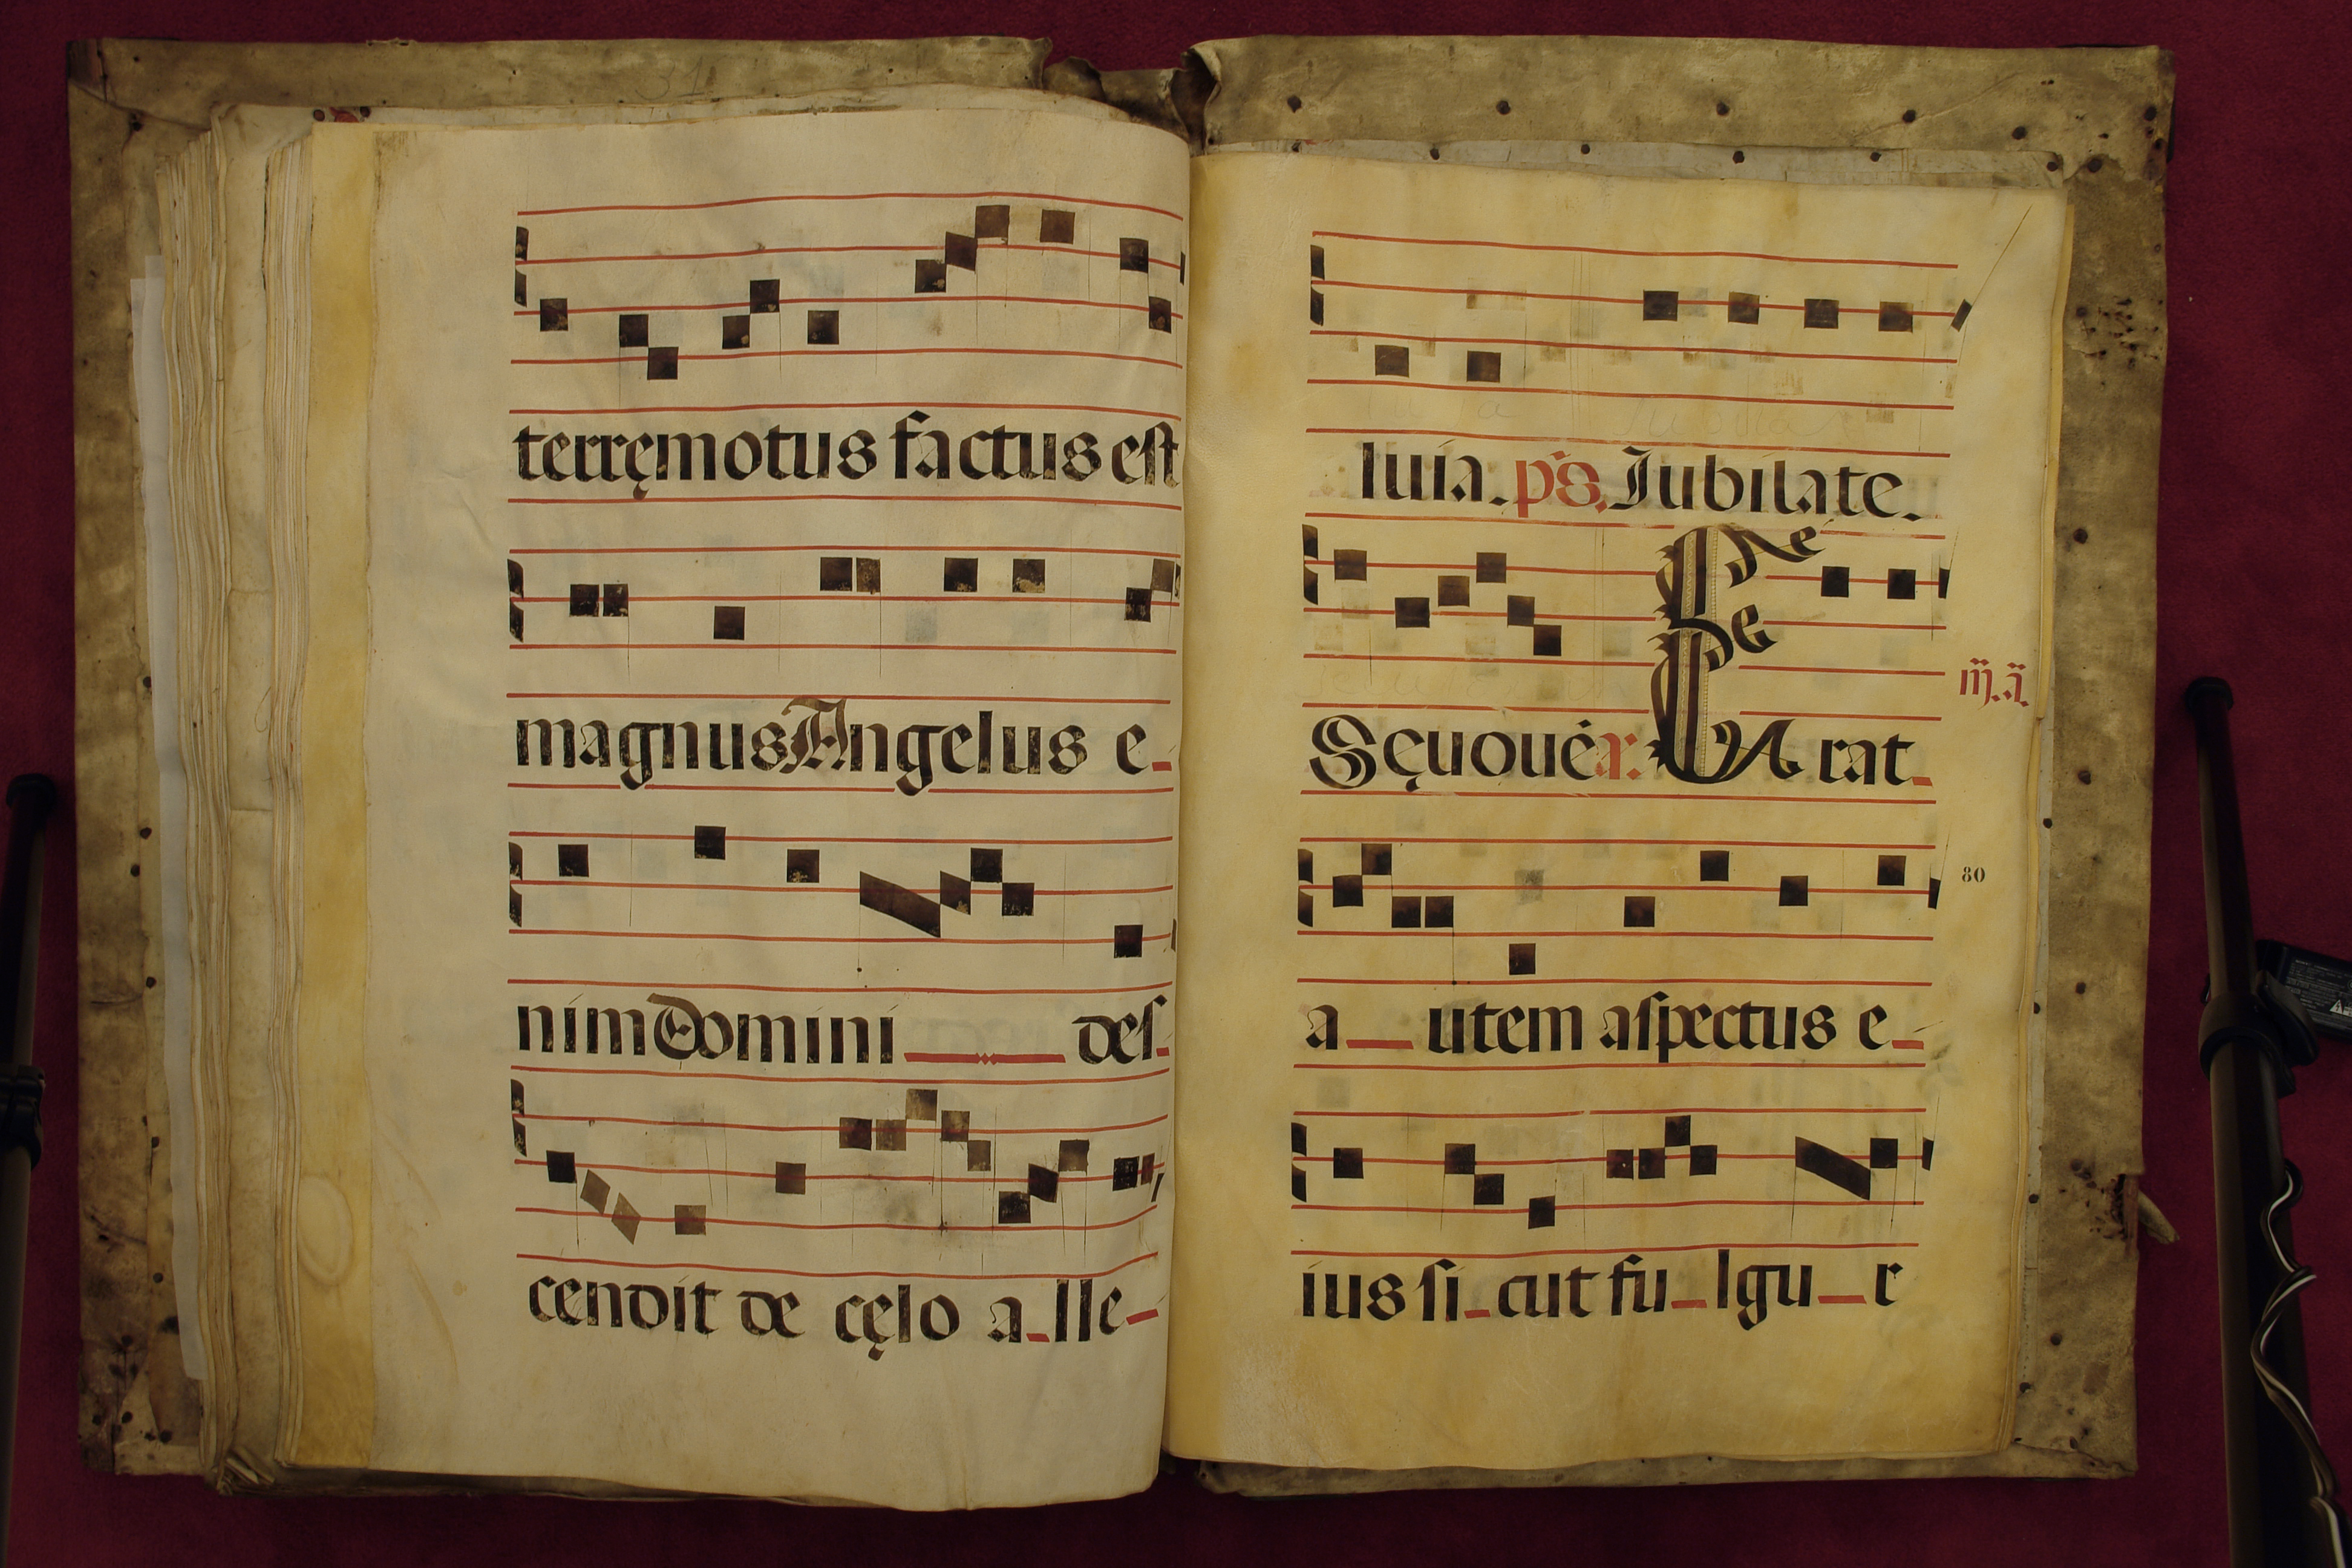 terręmotus factus est
magnus Angelus e-
nim Domini des-
cendit de cęlo a-lle-
luia. ps. Iubilate.
Sęuouę́ a: Erat-
m̃.ã.
a utem aspectus e-
80
ius si-cut fu-lgu-r